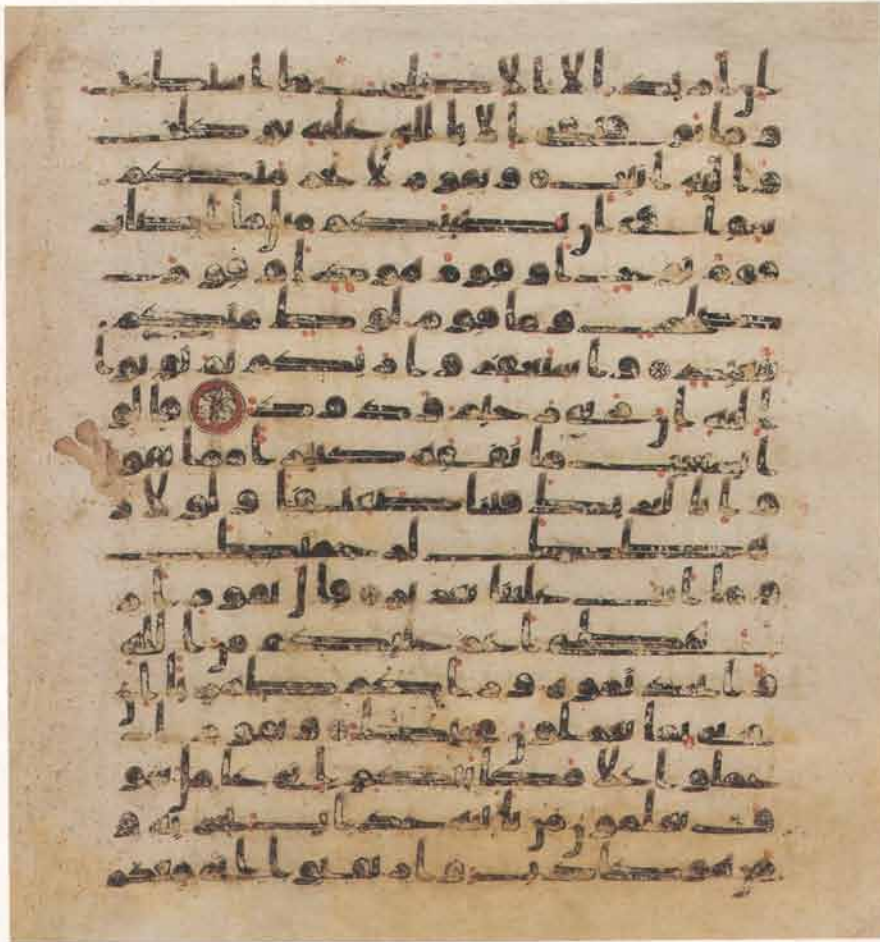 ان اريد الا الاصلح ما استطعت
وما توفيقى الا بالله عليه توكلت
واليه انيب ويقوم لا يجرمنكم
شقاقى ان يصيبكم مثل ما اصاب
قوم نوح او قوم هود او قوم
صلح وما قوم لوط منكم
ببعيد واستغفروا ربكم ثم توبوا
اليه ان ربى رحيم ودود قالوا
يشعيب ما نفقه كثيرا مما تقو
ل وانا لنريك فينا ضعيفا ولولا ر
هطك لرجمنك
وما انت علينا بعزيز قال يقوم ار
هطى اعز عليكم من الله
واتخذتموه وراكم ظهريا ان
ربى بما تعملون محيط ويقوم ا
عملوا على مكانتكم انى عمل سو
ف تعلمون من ياتيه عذاب يخزيه و
من هو كذب وارتقبوا انى معكم